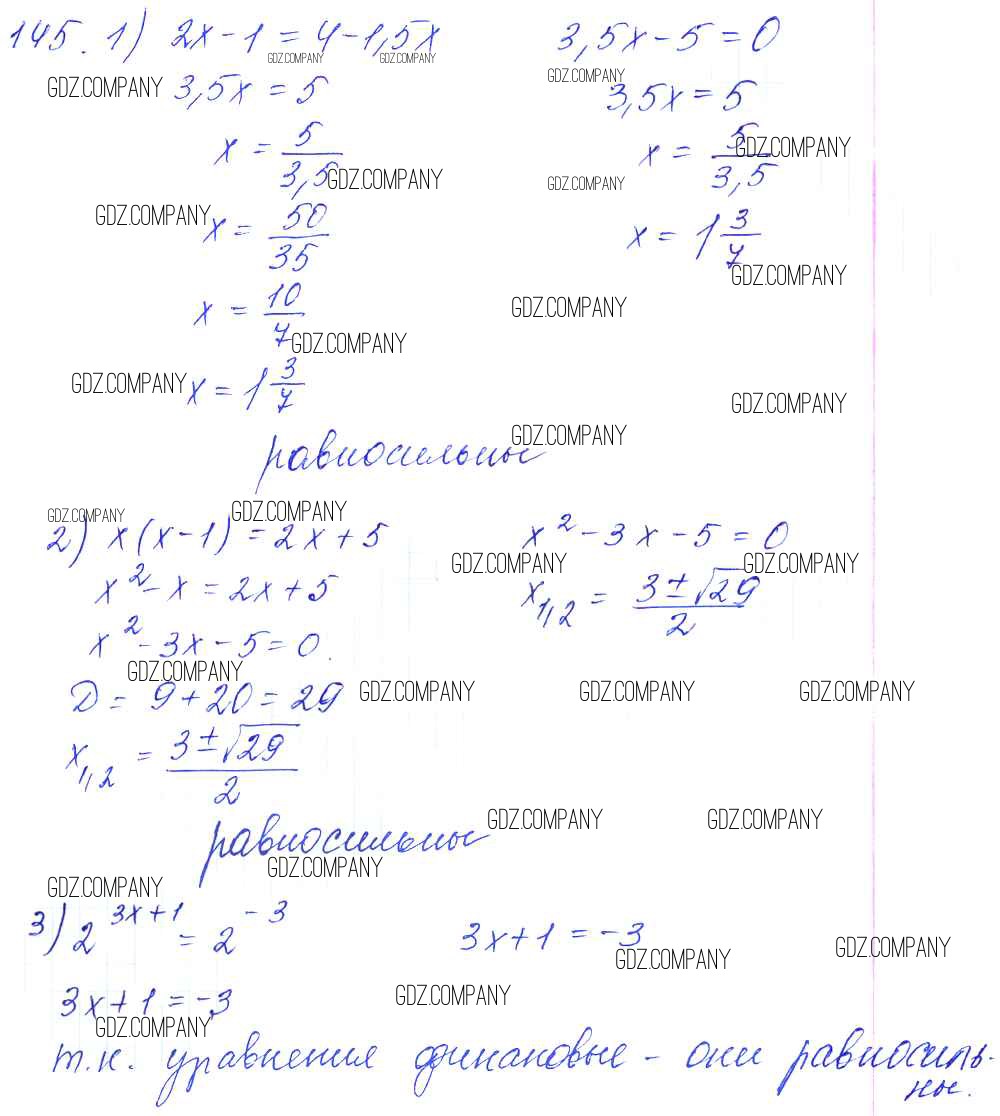 145. 1) 2x - 1 = 4 - 1,5x    3,5x - 5 = 0
GDZ.COMPANY GDZ.COMPANY
GDZ.COMPANY 3,5x = 5    GDZ.COMPANY 3,5x = 5
x = 5/3,5 GDZ.COMPANY    x = 5/3,5 GDZ.COMPANY GDZ.COMPANY
GDZ.COMPANY x = 50/35    x = 1 3/7 GDZ.COMPANY
x = 10/7 GDZ.COMPANY    GDZ.COMPANY
GDZ.COMPANY x = 1 3/7    GDZ.COMPANY
равносильны GDZ.COMPANY
GDZ.COMPANY GDZ.COMPANY
2) x(x-1) = 2x + 5    x² - 3x - 5 = 0
GDZ.COMPANY GDZ.COMPANY
x² - x = 2x + 5    x₁,₂ = (3 ± √29)/2
x² - 3x - 5 = 0.
GDZ.COMPANY
D = 9 + 20 = 29 GDZ.COMPANY GDZ.COMPANY GDZ.COMPANY
x₁,₂ = (3 ± √29)/2
GDZ.COMPANY GDZ.COMPANY
равносильны
GDZ.COMPANY
GDZ.COMPANY
3) 2^(3x+1) = 2^(-3)    3x + 1 = -3
GDZ.COMPANY GDZ.COMPANY
3x + 1 = -3 GDZ.COMPANY
GDZ.COMPANY
т.к. уравнения одинаковые - они равносиль-
ны.